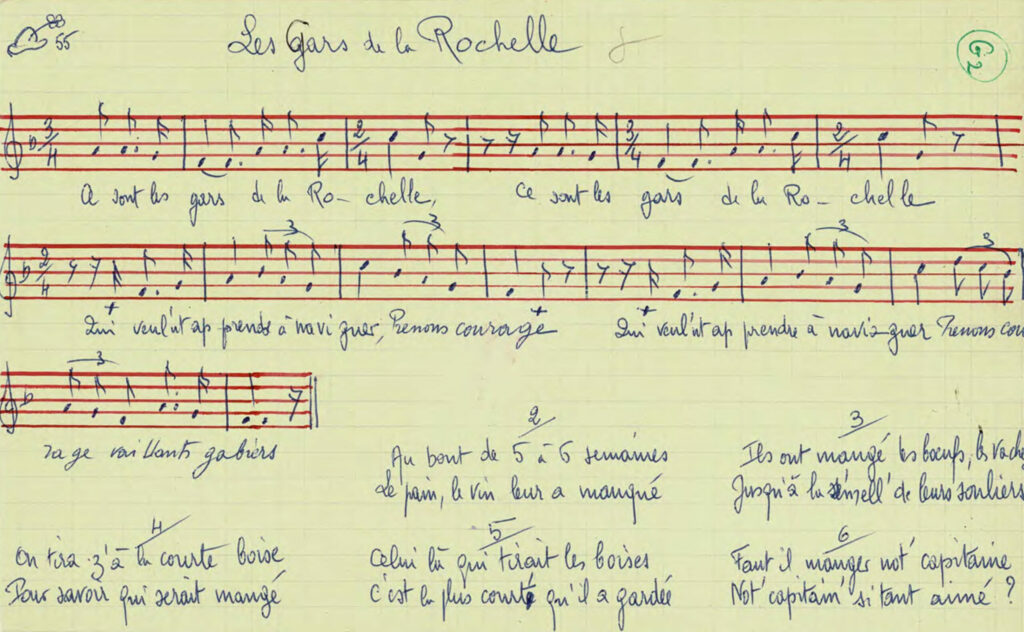 88
55
Les Gars de la Rochelle
G2
3/4 2/4 3/4 2/4
Ce sont les gars de la Ro- chelle, Ce sont les gars de la Ro- chelle
2/4 3 3 3 3
Qui veul'nt ap prendr à navi guer, Prenons courage Qui veul'nt ap prendre à navi-guer Prenons cou
3
rage vaillants gabiers
2
Au bout de 5 à 6 semaines
Le pain, le vin leur a manqué
3
Ils ont mangé les bœufs, les vach
Jusqu'à la s'mell' de leurs souliers
4
On tira-z'à la courte boise
Pour savoir qui serait mangé
5
Celui là qui tirait les boises
C'est la plus courte qu'il a gardée
6
Faut il manger not' capitaine
Not' capitain' si tant aimé ?